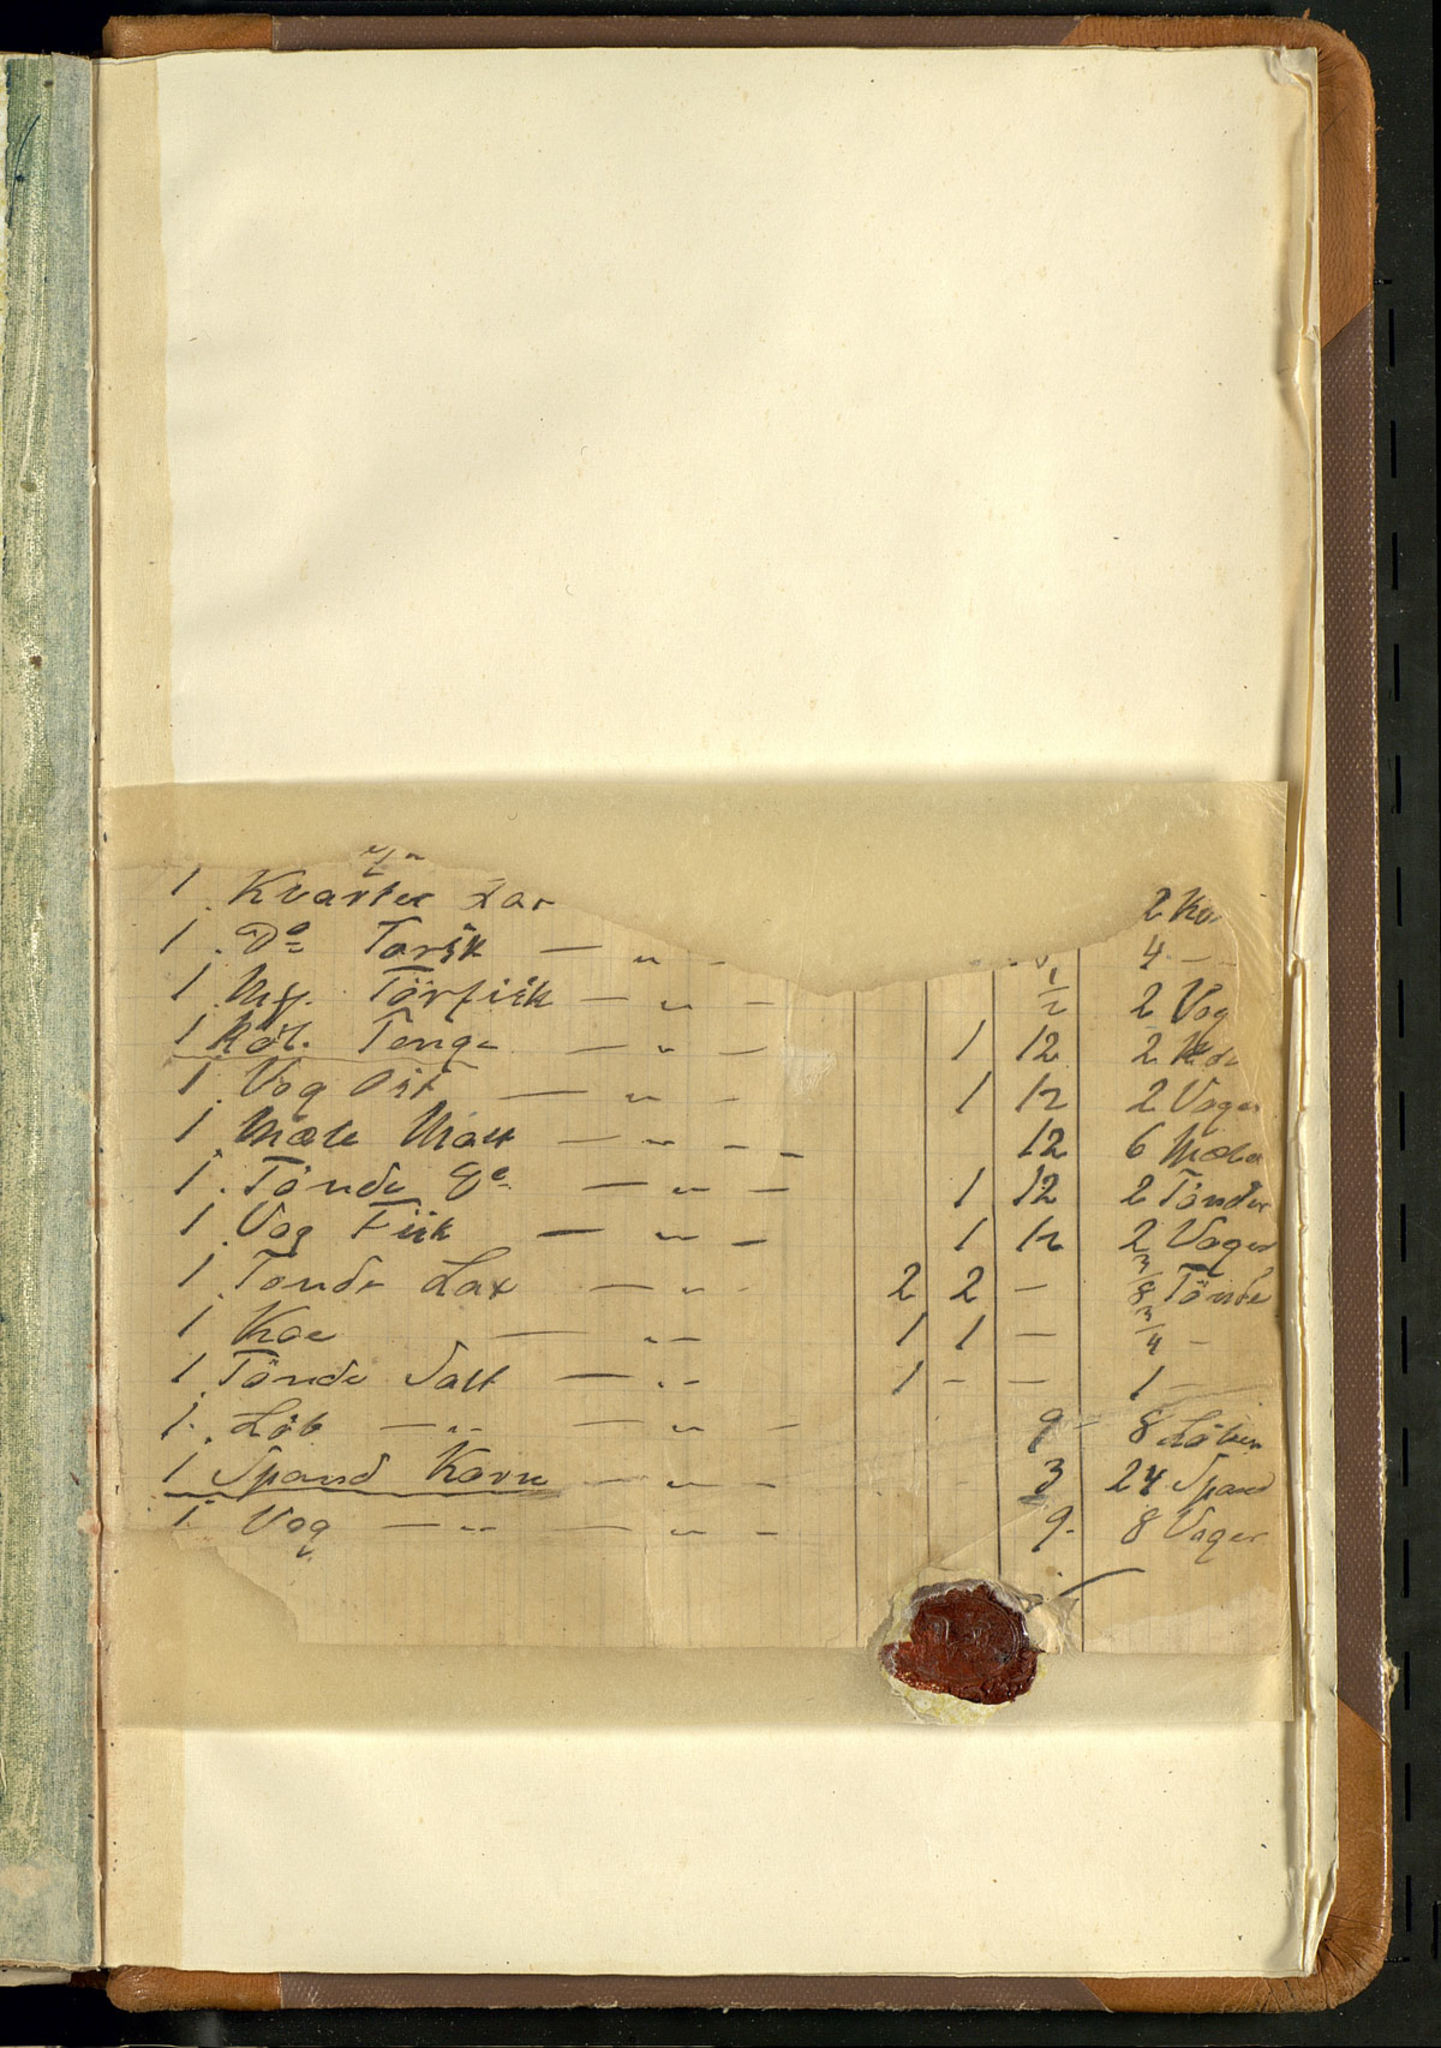 1. Kvarter
1. Do Tarsk — " — 4 — —
1. Törfisk — " — ½ 2 Vog
1 Penge — " — 1 12 2
1. Vog Ost — " — 1 12 2 Voger
1. Mæle Malt — " — — 12 6 Mæler
1. Tönde Do — " — 1 12 2 Tönder
1. Vog Fisk — " — 1 12 2 Voger
1. Tönde Lax — " - 2 2 — 3/8 Tönde
1 Koe — " — 1 1 — 3/4 -
1. Tönde Salt — " - 1 - — 1 -
1. Löb — " — " - 9 - 8 Löber
1 Spand Korn — " - 3 24 Spand
1. Vog — " — " - 9. 8 Voger